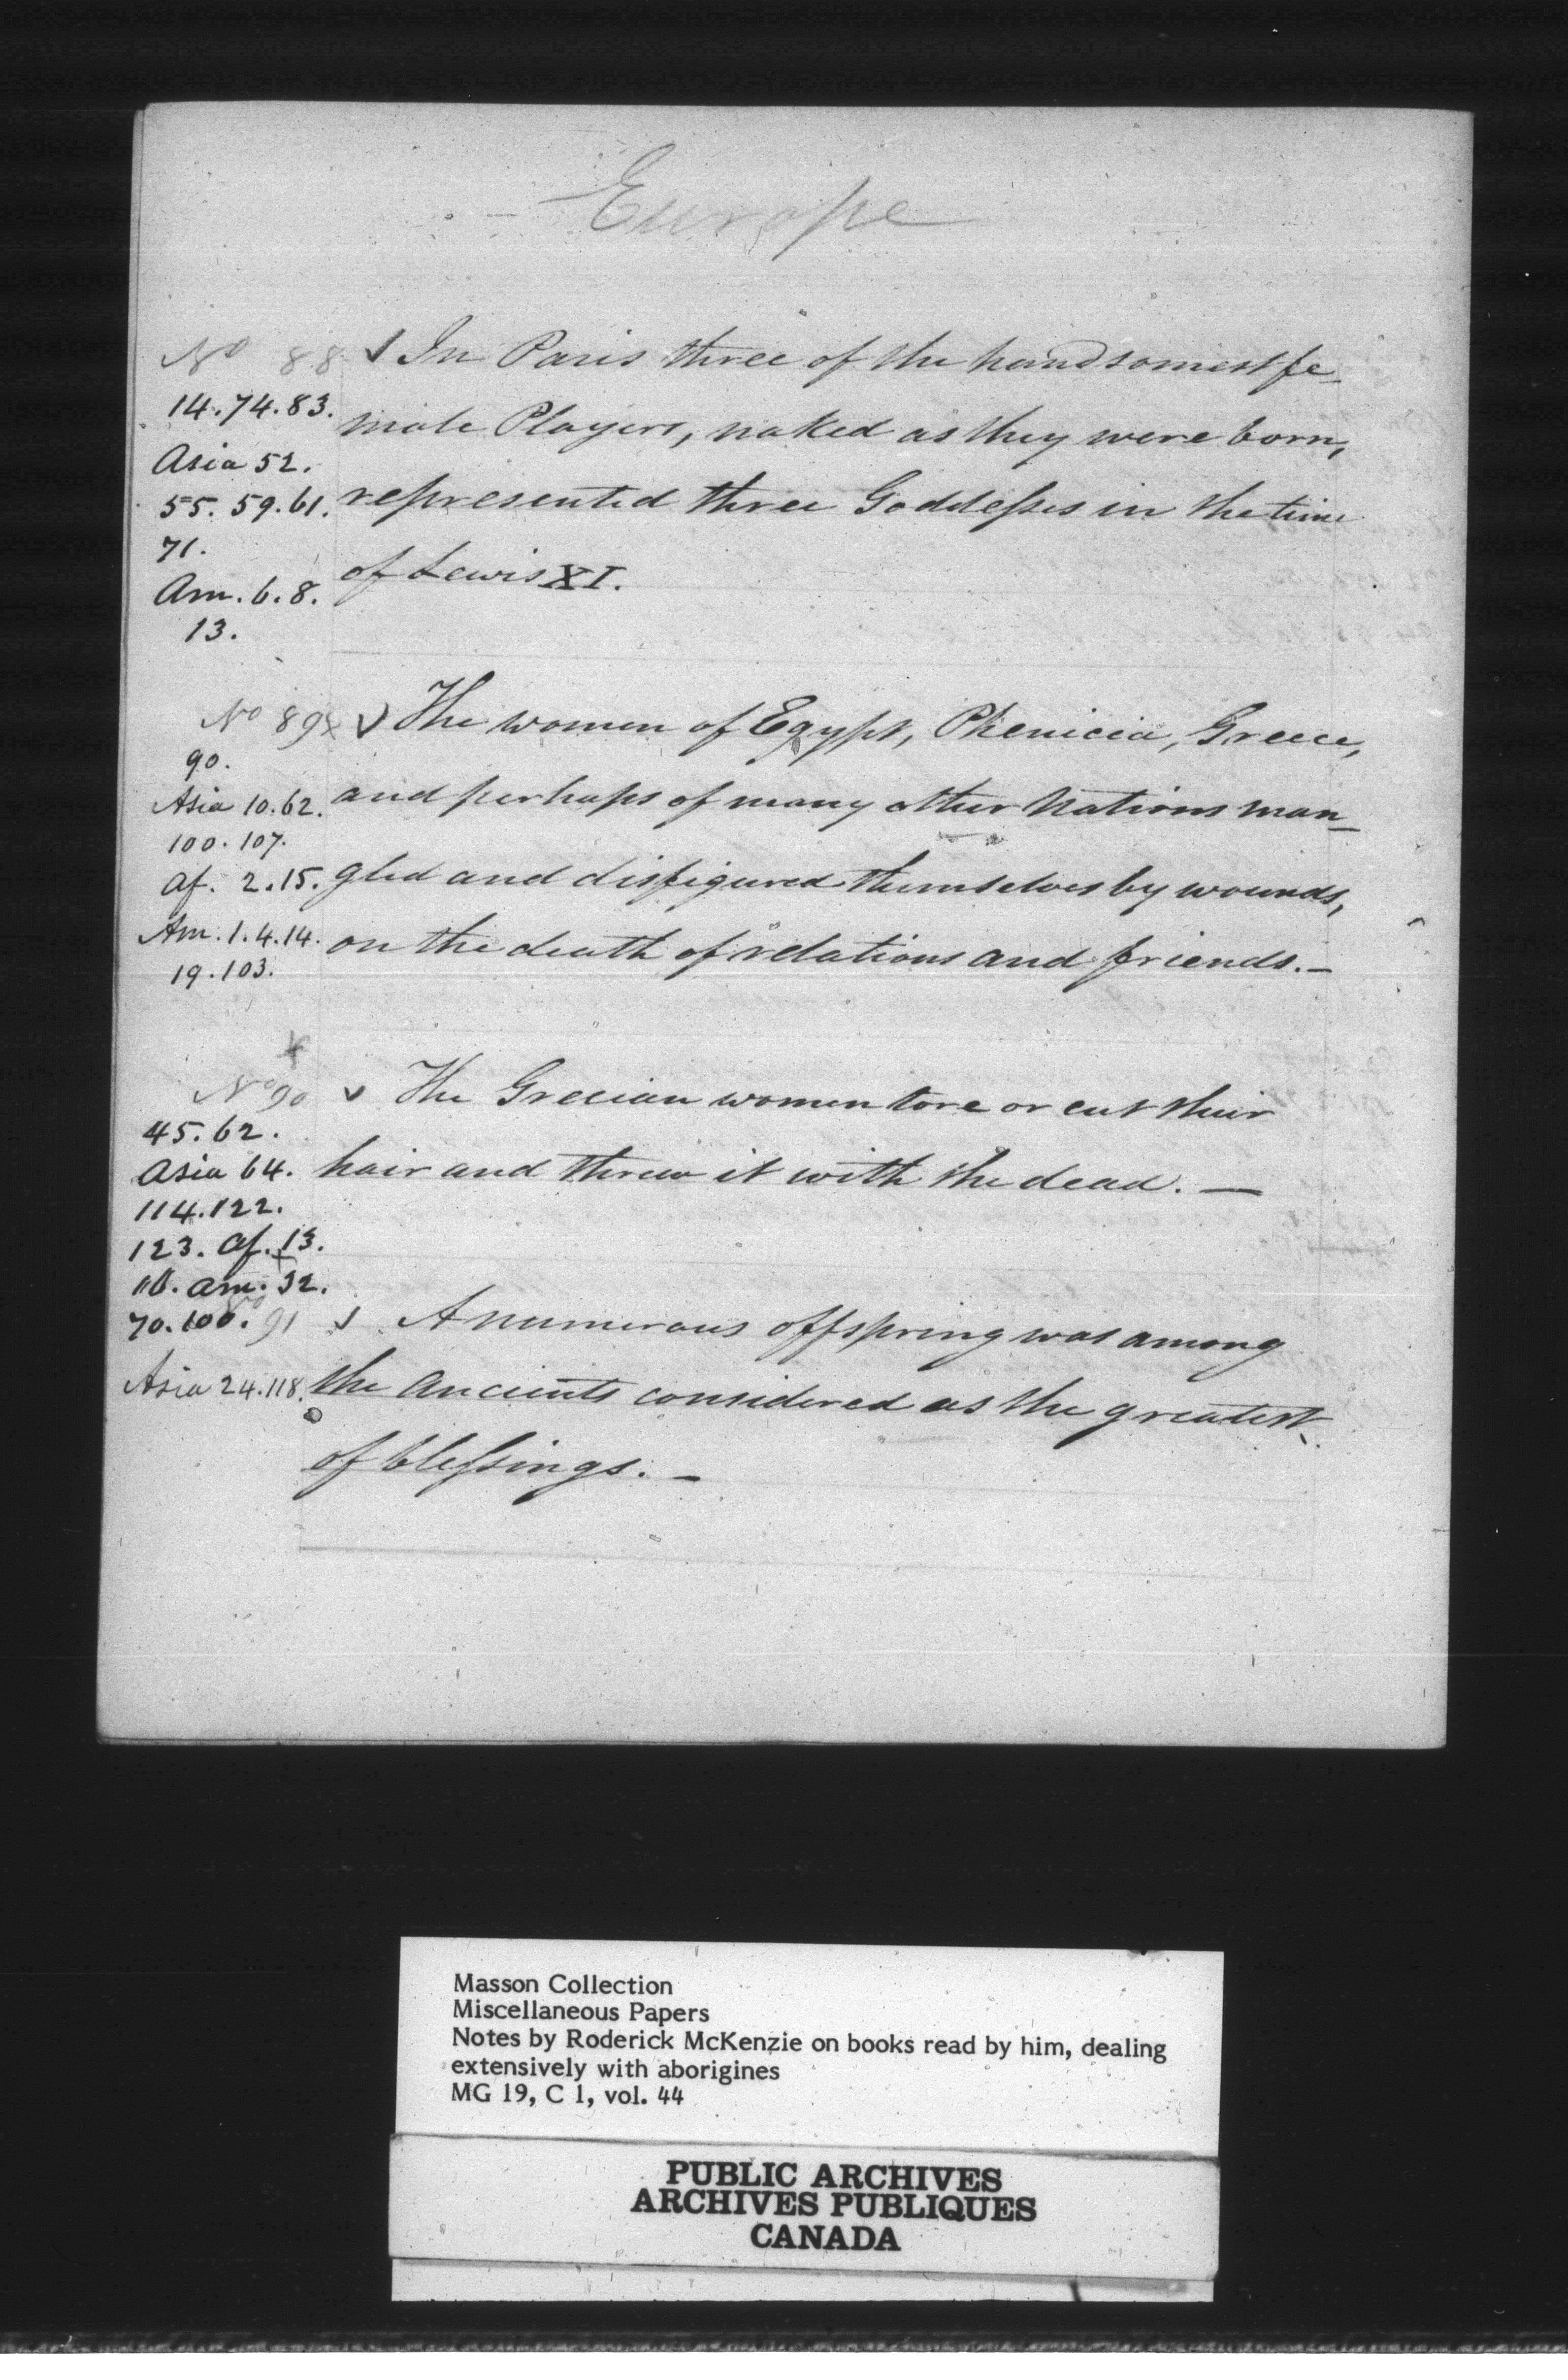 Europe
No 88 ✓ In Paris three of the handsomest fe-
14.74.83. male Players, naked as they were born,
Asia 52.
55. 59. 61. represented three Goddesses in the time
71.
of Lewis XI.
Am. 6. 8.
13.
No 89 x ✓ The women of Egypt, Phenicia, Greece,
90.
Asia 10. 62. and perhaps of many other Nations man-
100. 107.
Af. 2. 15. gled and disfigured themselves by wounds,
Am. 1. 4. 14. on the death of relations and friends. -
19. 103.
No 90 ✓ The Grecian women tore or cut their
45. 62.
Asia 64. hair and threw it with the dead. —
114. 122.
123. Af. 13.
am. 32.
70. 100.
No 91 ✓ A numerous offspring was among
Asia 24. 118. the Ancients considered as the greatest
of blessings. -
Masson Collection
Miscellaneous Papers
Notes by Roderick McKenzie on books read by him, dealing
extensively with aborigines
MG 19, C 1, vol. 44
PUBLIC ARCHIVES
ARCHIVES PUBLIQUES
CANADA